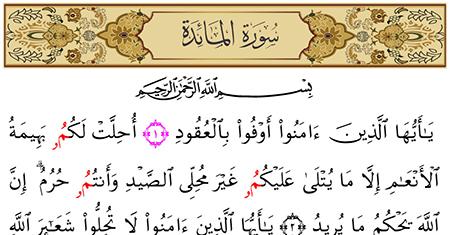 سُورَةُ المَائِدَةِ
بِسْمِ ٱللَّهِ ٱلرَّحْمَٰنِ ٱلرَّحِيمِ
يَٰٓأَيُّهَا ٱلَّذِينَ ءَامَنُوٓا۟ أَوْفُوا۟ بِٱلْعُقُودِ ﴿١﴾ أُحِلَّتْ لَكُمُۥ بَهِيمَةُ
ٱلْأَنْعَٰمِ إِلَّا مَا يُتْلَىٰ عَلَيْكُمُۥ غَيْرَ مُحِلِّى ٱلصَّيْدِ وَأَنتُمُۥ حُرُمٌ ۗ إِنَّ
ٱللَّهَ يَحْكُمُ مَا يُرِيدُ ﴿٢﴾ يَٰٓأَيُّهَا ٱلَّذِينَ ءَامَنُوا۟ لَا تُحِلُّوا۟ شَعَٰٓئِرَ ٱللَّهِ